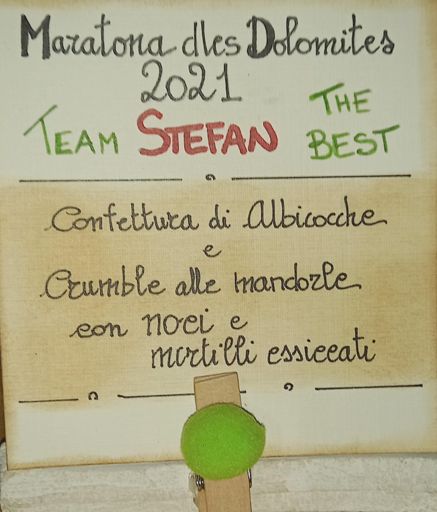 Maratona dles Dolomites
2021
TEAM STEFAN THE BEST
Confettura di Albicocche
e
Crumble alle mandorle
con noci e
mirtilli essiccati